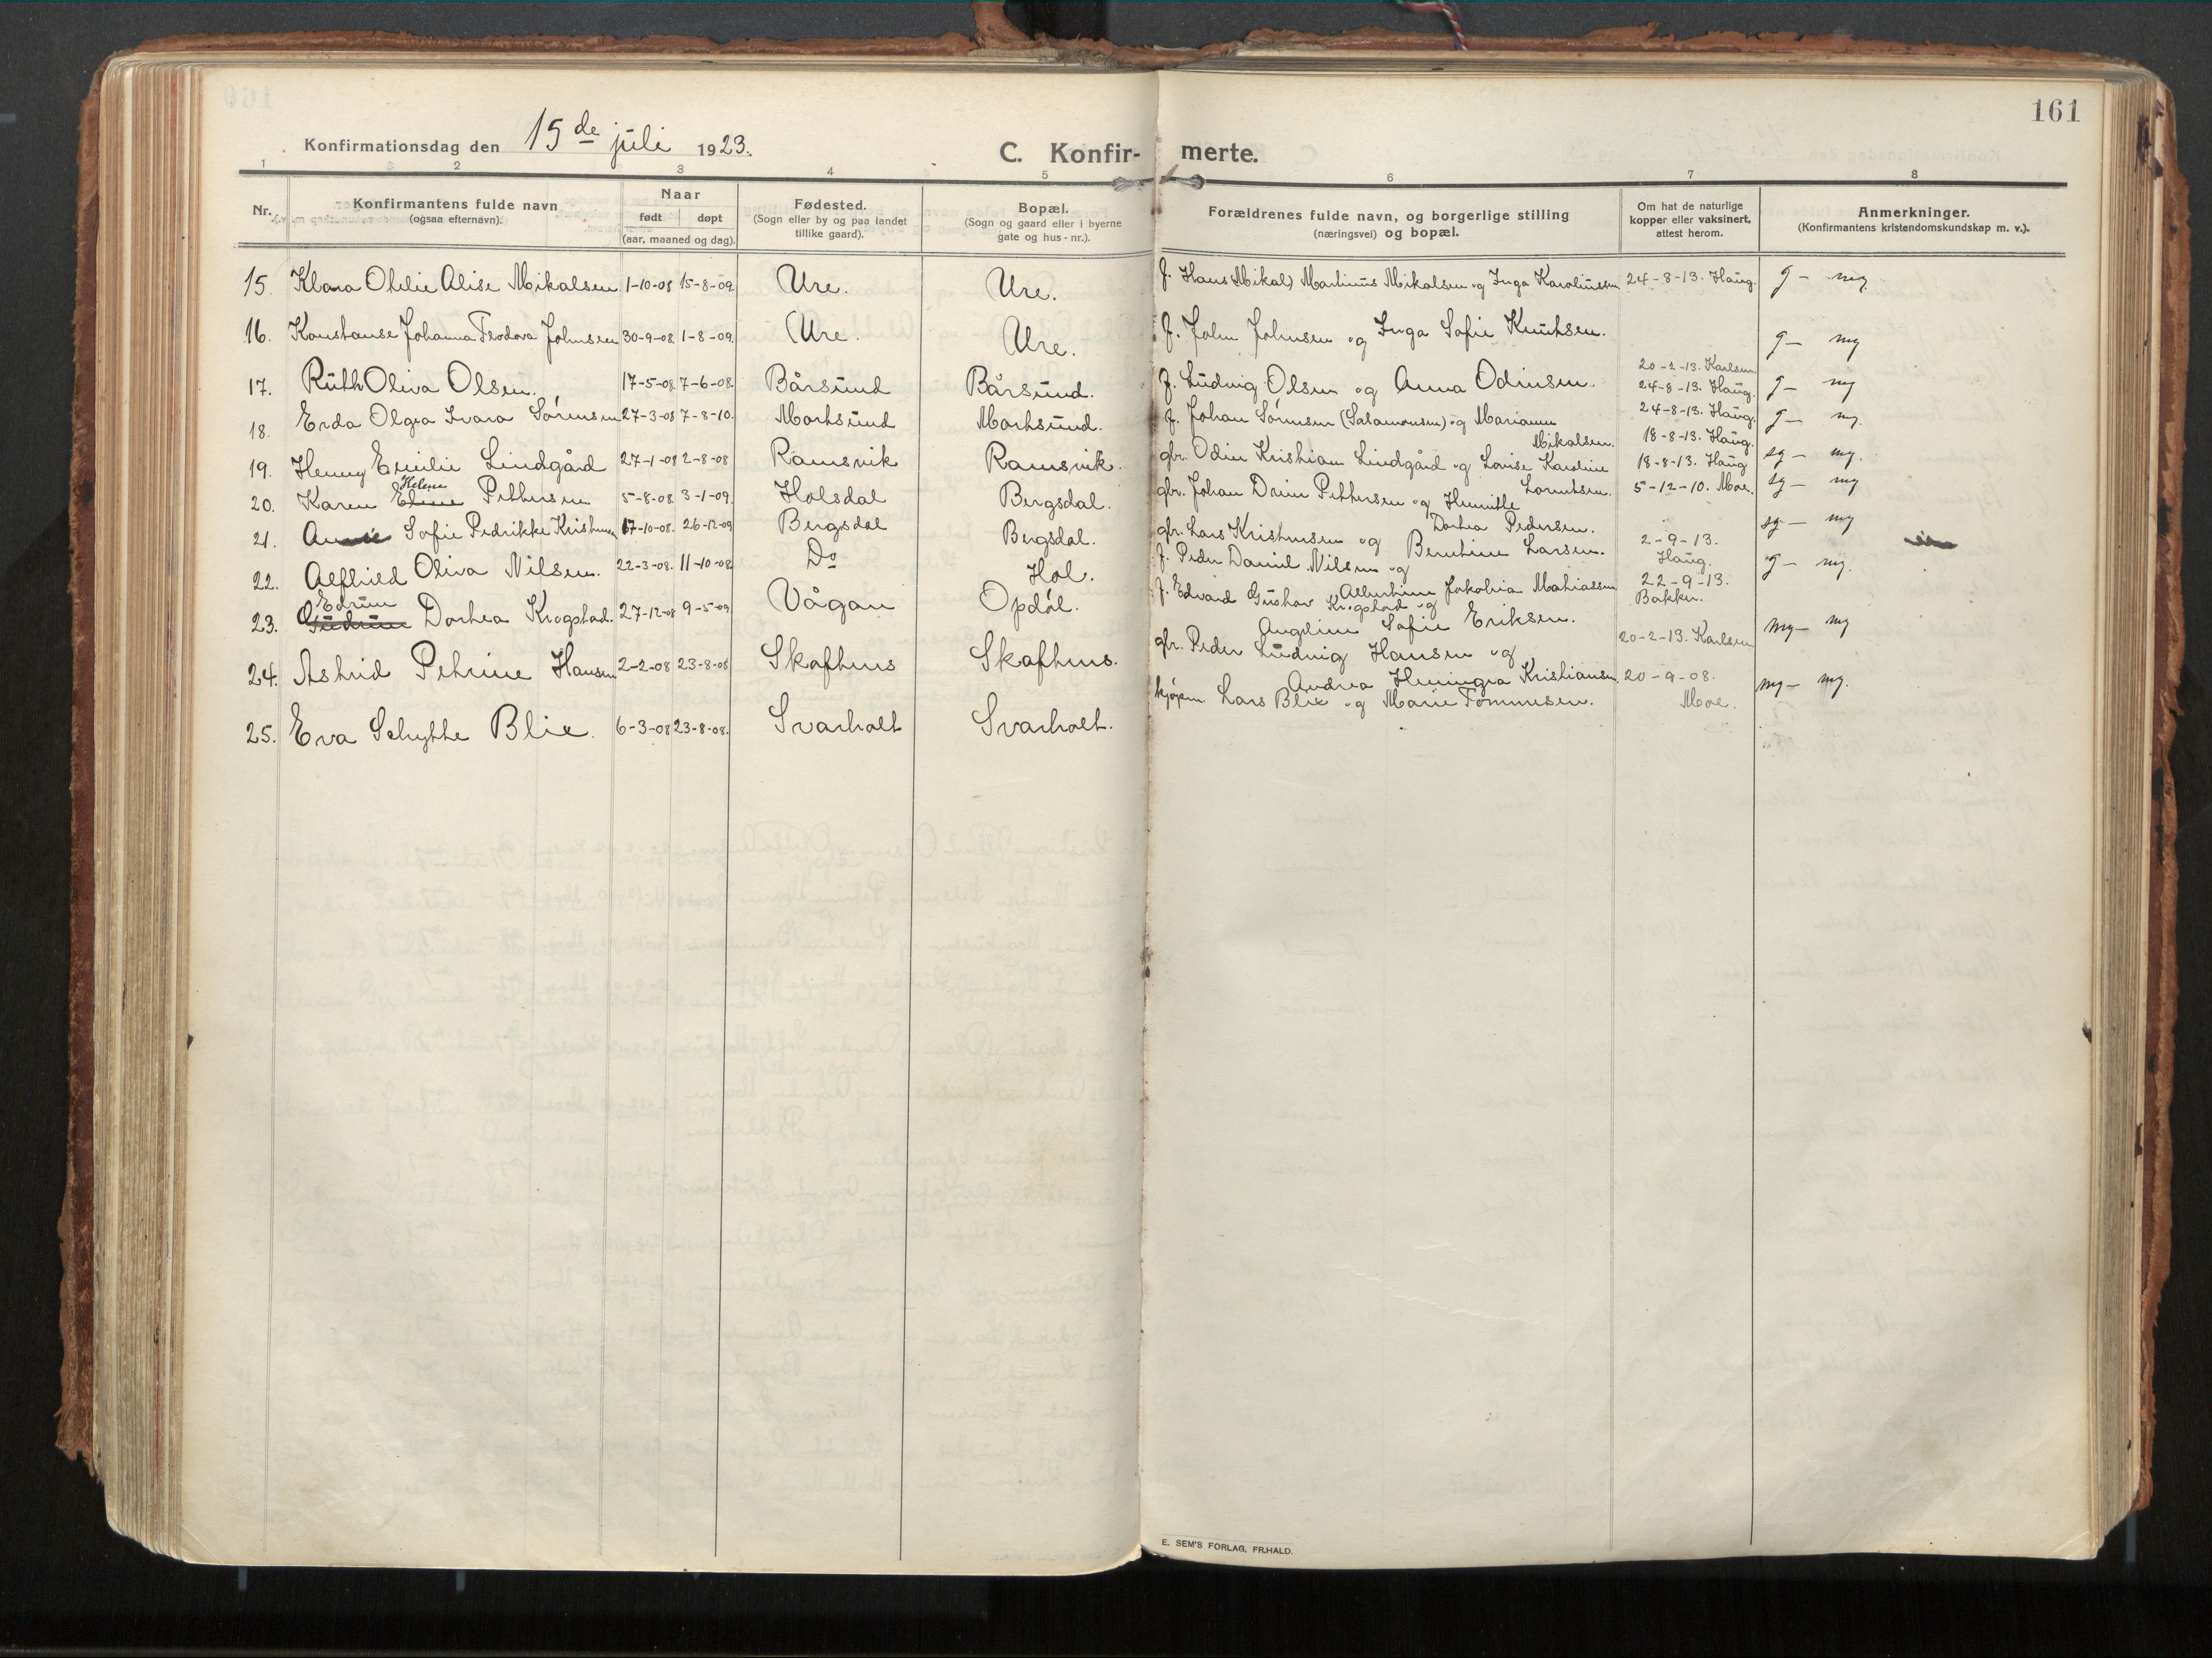 161
Konfirmationsdag den 15de juli 1923.
C. Konfir- merte.
1 2 3 4 5 6 7 8
Nr. Konfirmantens fulde navn (ogsaa efternavn). Naar født døpt (aar, maaned og dag). Fødested. (Sogn eller by og paa landet tillike gaard). Bopæl. (Sogn og gaard eller i byerne gate og hus-nr.). Forældrenes fulde navn, og borgerlige stilling (næringsvei) og bopæl. Om hat de naturlige kopper eller vaksinert, attest herom. Anmerkninger. (Konfirmantens kristendomskundskap m. v.).
15. Klara Otelie Alise Mikalsen 1-10-08 15-8-09. Ure. Ure. f. Hans (Mikal) Martinus Mikalsen og Inga Karolinssen 24-8-13. Haug. g — mg.
16. Konstanse Johanna Teodora Johnsen 30-9-08. 1-8-09. Ure. Ure. f. John Johnsen og Inga Sofie Knutsen. g — mg
17. Ruth Oliva Olsen. 17-5-08. 7-6-08. Bårsund Bårsund. f. Ludvig Olsen og Anna Odinsen. 20-2-13. Karlsen 24-8-13. Haug. g — mg
18. Erda Olga Ivara Sørensen 27-3-08 7-8-10. Mortsund Mortsund. f. Johan Sørensen (Salamonsen) og Marianne Mikalsen. 24-8-13. Haug. g — mg.
19. Henny Emilie Lindgård 27-1-08 2-8-08 Ramsvik Ramsvik. gbr. Odin Kristian Lindgård og Lovise Karoline Lorntsen. 18-8-13. Haug. sg — mg.
20. Karen Eline Helene Pettersen 5-8-08. 3-1-09. Holsdal Bergsdal. gbr. Johan Drin Pettersen og Henritte Dorthea Pedersen. 18-8-13. Haug sg — mg
21. Sofie Pedrikke Kristensen 17-10-08. 26-12-09 Bergsdal Bergsdal. gbr. Lars Kristensen og Berntine Larsen. 5-12-10. Moe. sg — mg
22. Alfhild Oliva Nilsen. 22-3-08. 11-10-08. Do Hol. f. Peder Daniel Nilsen og Albertine Jakobia Mathiassen 2-9-13. Haug. g — mg.
23. Gudrun Edrun Dorthea Krogstad. 27-12-08 9-5-09. Vågan Opdøl. f. Edvard Gustav Krogstad og Angeline Sofie Eriksen. 22-9-13. Bakker. mg — mg
24. Astrid Petrine Hansen 2-2-08 23-8-08 Skafthus Skafthus. gbr. Peder Ludvig Hansen og Andrea Hemingea Kristiansen. 20-2-13. Karlsen mg — mg.
25. Eva Schytte Blix. 6-3-08 23-8-08. Svarholt Svarholt. kjøpm. Lars Blix og Marie Tommesen. 20-9-08. Moe.
E. SEM'S FORLAG, FR.HALD.